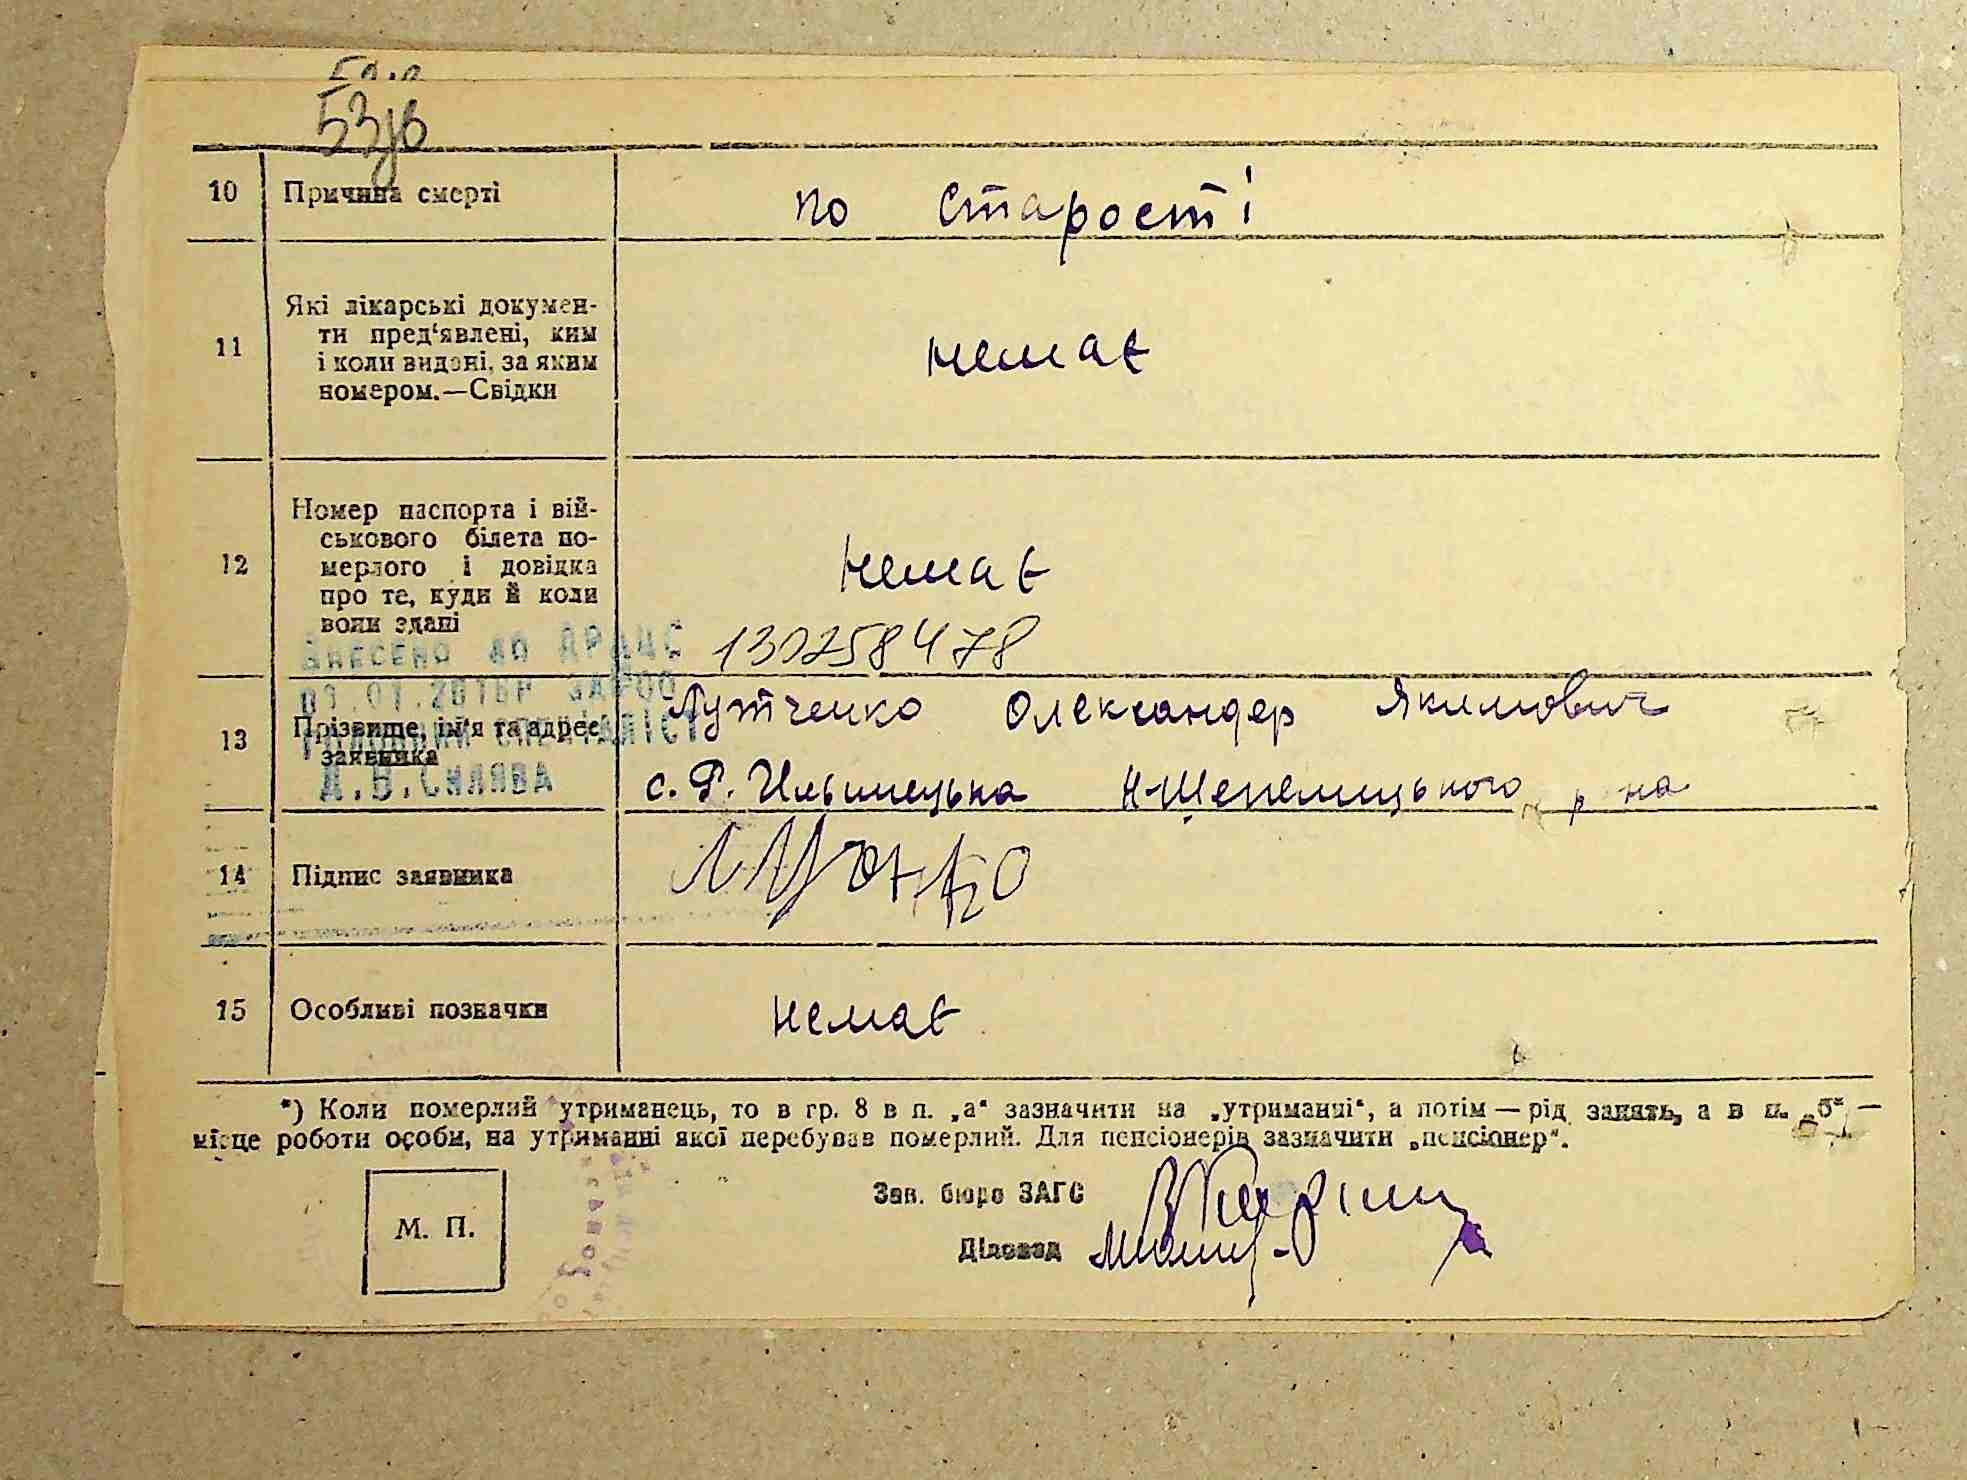 53зв
10 Причина смерті по старості
11 Які лікарські докумен-
ти пред'явлені, ким
і коли видані, за яким
номером.—Свідки
немає
12 Номер паспорта і вій-
ськового білета по-
мерлого і довідка
про те, куди й коли
вони здані
немає
130258478
ВНЕСЕНО ДО ДРАЦС
ГОЛОВНИЙ СПЕЦІАЛІСТ
13 Прізвище, ім'я та адрес
заявника
Лутченко Олександер Якимович
с. Р. Ильинецька Н-Шепелицького р-на
14 Підпис заявника
15 Особливі позначки немає
*) Коли померлий утриманець, то в гр. 8 в п. „а“ зазначити на „утриманні“, а потім — рід занять, а в п. „б“ —
місце роботи особи, на утриманні якої перебував померлий. Для пенсіонерів зазначити „пенсіонер“.
М. П.
Зав. бюро ЗАГС
Діловод